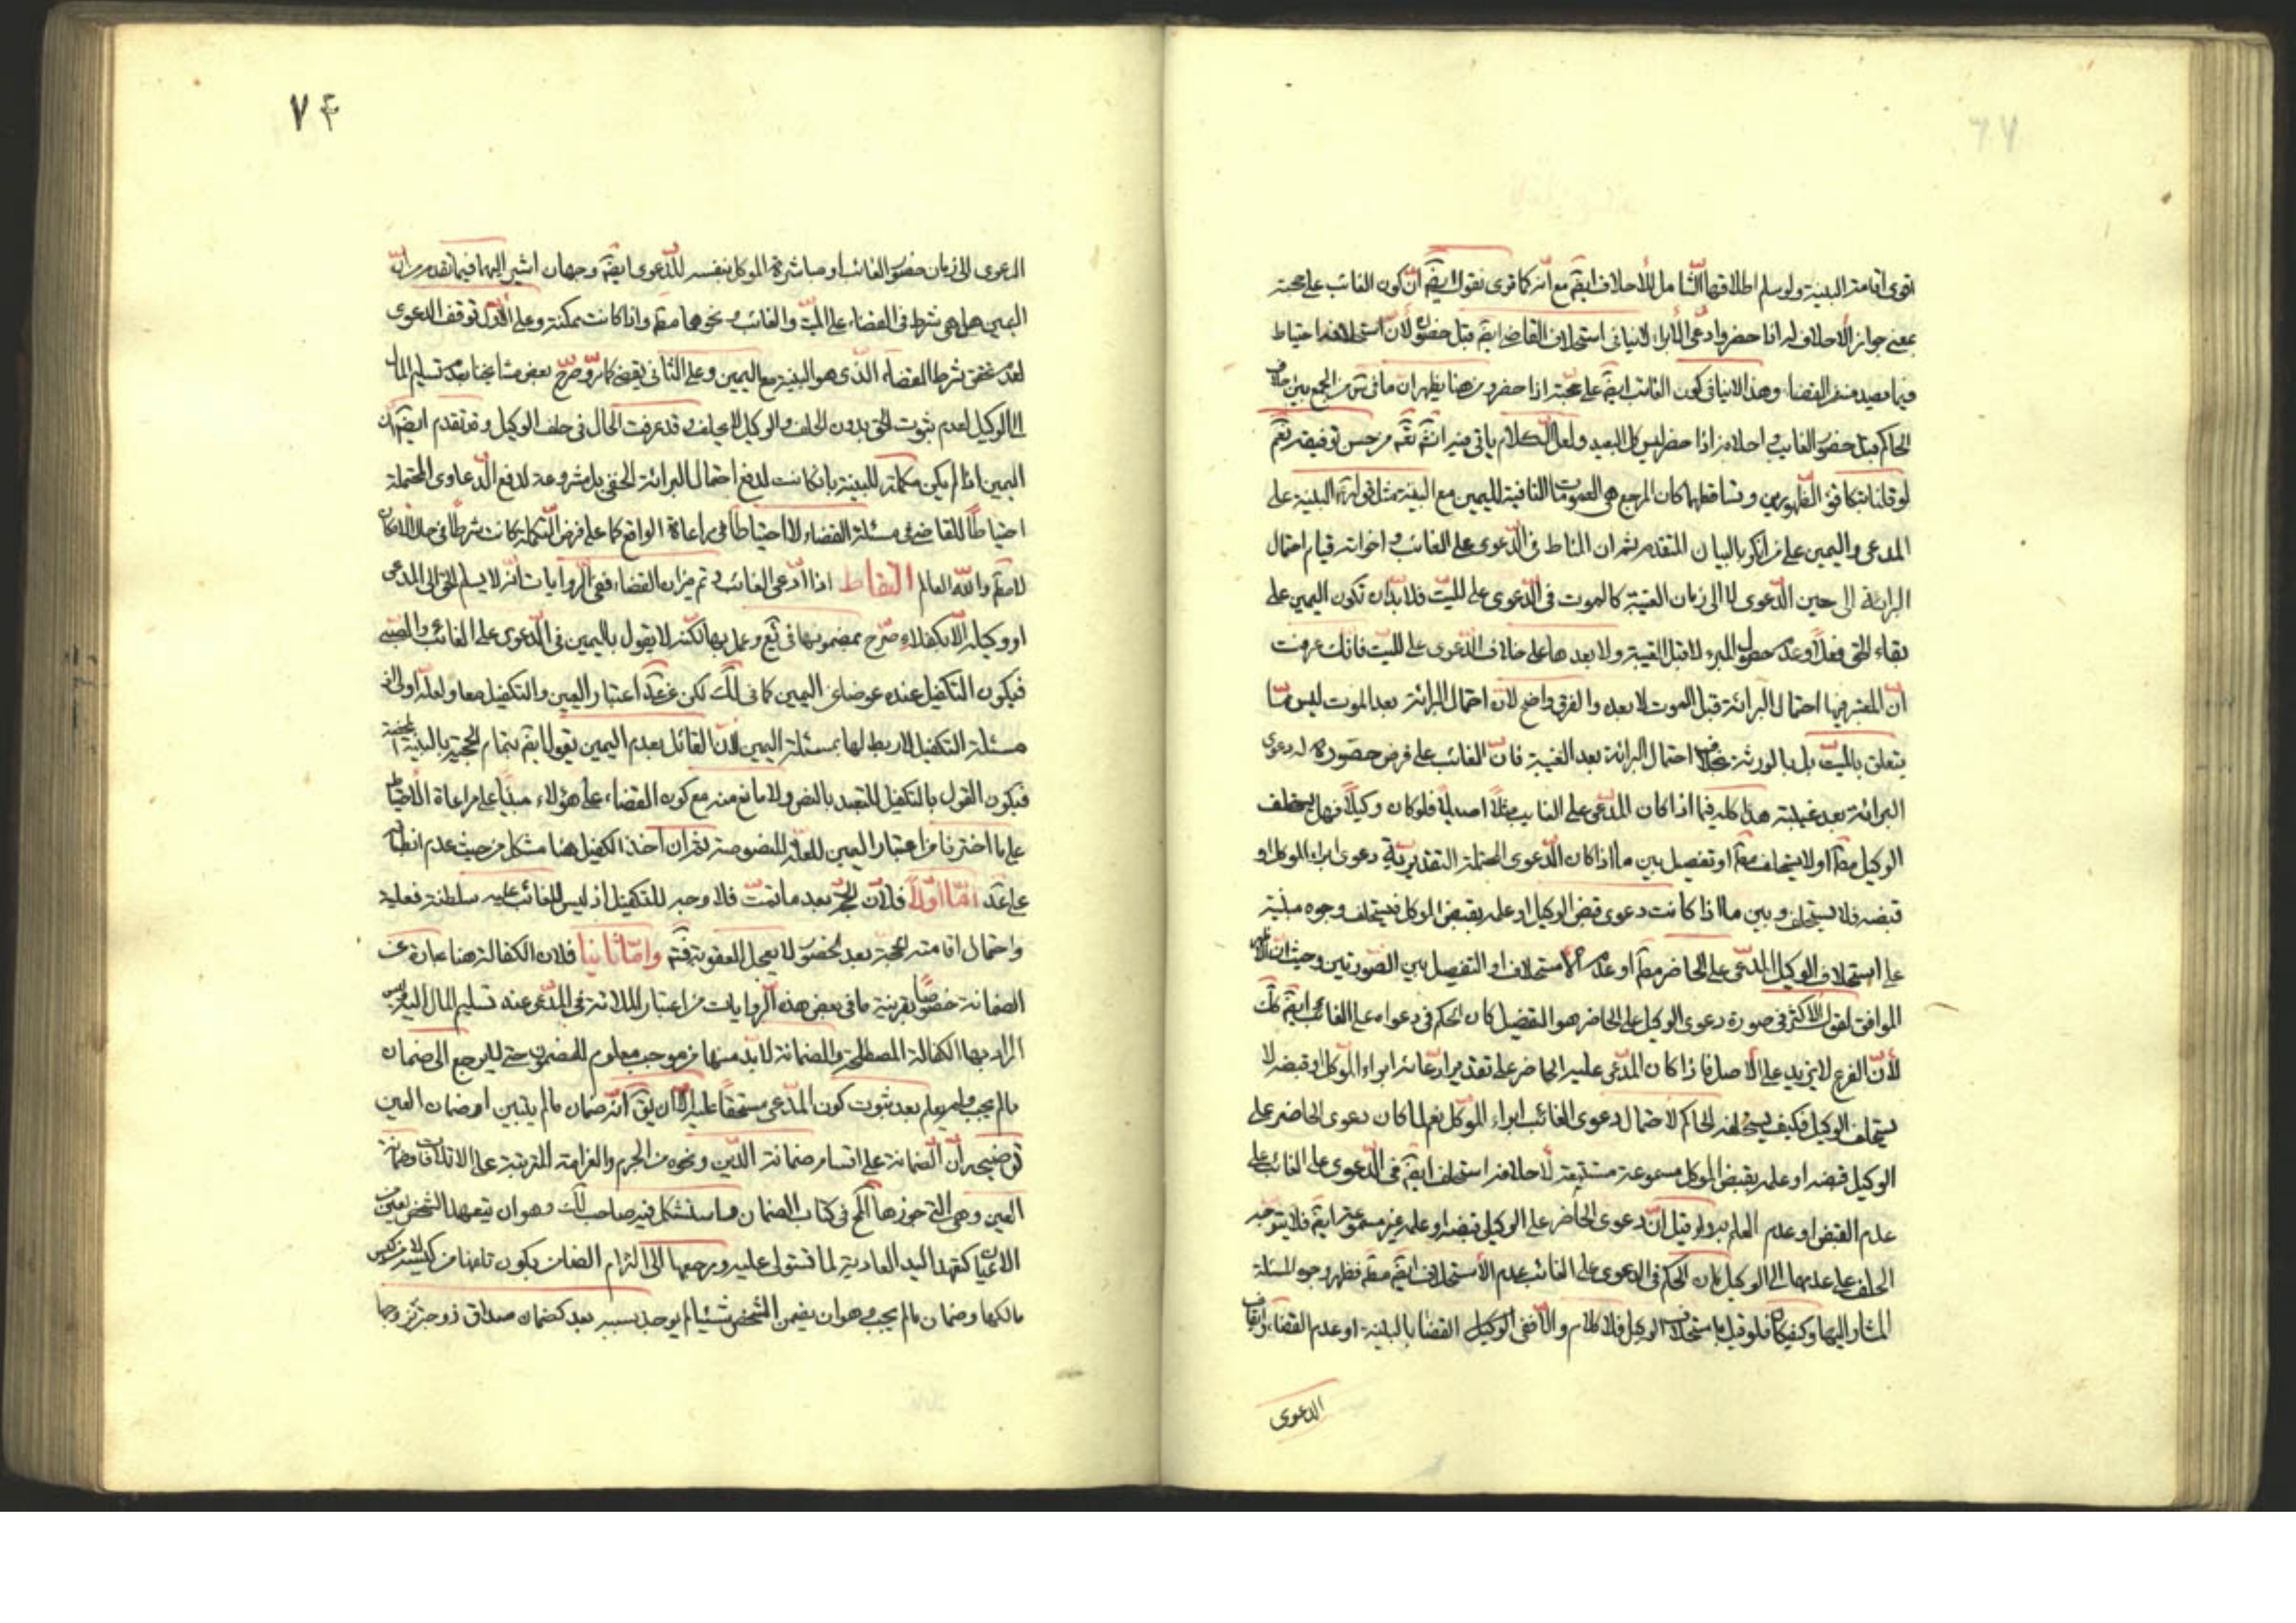 اقوى اقامة البينة ولو سلم اطلاقها الشامل للاحلاف ايضم مع انه كما قوى نقول ايضم ان كون الغائب على حجته
بمعنى جواز الاحلاف له اذا حضر وادعى الابراء لا ينافى استحلاف القاضى ايضم قبل حضوره لان استحلافه احتياط
وهذا لا ينافى كون الغائب ايضم على حجته اذا حضر ومن هنا يظهر ان ما فى من الجمع بين احلاف
الحاكم قبل حضور الغايب واحلافه اذا حضر ليس كل البعيد ولعل الكلام ياتى فيه انشم تعم من حسن توفيقه نعم
لو قلنا بتكافؤ الظهورين وتساقطهما كان المرجع هى العمومات النافية لليمين مع البينة مثل قوله البينة على
المدعى واليمين على من انكر بالبيان المتقدم ثم ان المناط فى الدعوى على الغائب واخواته قيام احتمال
البرائة الى حين الدعوى لا الى زمان الغيبة كالموت فى الدعوى على الميت فلا بد ان تكون اليمين على
بقاء الحق فعلا وعدم حصول المبرء لا قبل الغيبة ولا بعدها على خلاف الدعوى على الميت فانك عرفت
ان المعتبر فيها احتمال البرائة قبل الموت لا بعده والفرق واضح لان احتمال البرائة بعد الموت ليس مما
يتعلق بالميت بل بالورثة بخلاف احتمال البرائة بعد الغيبة فان الغائب على فرض حضوره له دعوى
البرائة بعد غيبته هذا كله فيما اذا كان المدعى على الغايب مثلا اصيلا فلو كان وكيلا فهل يستحلف
الوكيل مطم او لا يستحلف مطم او تفصيل بين ما اذا كان الدعوى المحتملة التقديرية دعوى ابراء الموكل او
قبضه فلا يستحلف وبين ما اذا كانت دعوى قبض الوكيل او علمه بقبض الموكل فيستحلف وجوه مبنية
على استحلاف الوكيل المدعى على الحاضر مطم او عدم الاستحلاف او التفصيل بين الصورتين وحيث ان الاظهر
الموافق لقول الاكثر فى صورة دعوى الوكيل على الحاضر هو التفصيل كان الحكم فى دعواه على الغائب ايضم كك
لان الفرع لا يزيد على الاصل فاذا كان المدعى عليه الحاضر على تقدير ادعائه ابراء الموكل او قبضه لا
يستحلف الوكيل فكيف يستحلفه الحاكم لاحتمال دعوى الغائب ابراء الموكل نعم لما كان دعوى الحاضر على
الوكيل قبضه او علمه بقبض الموكل مسموعة مستتبعة لاحلافه استحلف ايضم فى الدعوى على الغائب على
عدم القبض او عدم العلم به ولو قيل ان دعوى الحاضر على الوكيل قبضه او علمه غير مسموعة ايضم فلا يتوجه
الحلف على عدمهما الى الوكيل كان الحكم فى الدعوى على الغائب عدم الاستحلاف ايضم مطم فظهر وجوه المسئلة
المشار اليها وكيفكان فلو قيل باستحلاف الوكيل فلا كلام والا ففى الوكيل القضا بالبينة او عدم القضا وايقاف
الدعوى
٧٤
الدعوى الى زمان حضور الغائب او مباشرة الموكل بنفسه للدعوى ايضم وجهان اشير اليهما فيما تقدم من ان
اليمين هل هى شرط فى القضاء على الميت والغائب ونحوهما مطم واذا كانت ممكنة وعلى الاول توقف الدعوى
لعدم تحقق شرط القضاء الذى هو البينة مع اليمين وعلى الثانى يقضى كما مر وصرح بعض مشايخنا بعدم تسليم المال
الى الوكيل لعدم ثبوت الحق بدون الحلف والوكيل لا يحلف وقد عرفت الحال فى حلف الوكيل وقد تقدم ايضم ان
اليمين اذا لم يكن مكملة للبينة بان كانت لدفع احتمال البرائة الخفى بل مشروعة لدفع الدعاوى المحتملة
احتياطا للقاضى فى مسئلة القضاء لا احتياطا فى مراعاة الواقع كما على فرض التكملة كانت شرطا فى حال الامكان
لا مطم والله العالم التقاط اذا ادعى الغائب وتم ميزان القضاء ففى الروايات انه لا يسلم الحق الى المدعى
او وكيله الا بكفلاء صرح بمضمونها فى يع وعمل بها لكنه لا يقول باليمين فى الدعوى على الغائب والصبى
فيكون التكفيل عنده عوضا عن اليمين كما فى لك لكن عن عد اعتبار اليمين والتكفيل معا ولعله اولى اذ
مسئلة التكفيل لا ربط لها بمسئلة اليمين لان القائل بعدم اليمين يقول ايضم بتمام الحجة بالبينة المحضة
فيكون القول بالتكفيل للتعبد بالنص ولا مانع منه مع كون القضاء على هؤلاء مبنيا على مراعاة الاحتياط
على ما اخترنا من اعتبار اليمين للعلة المنصوصة ثم ان اخذ الكفيل هنا مشكل من حيث عدم انطباقه
على عد اما اولا فلان الحق بعد ما تمت فلا وجه للتكفيل اذ ليس للغائب عليه سلطنة فعلية
واحتمال اقامته الحجة بعد الحضور لا يعجل للعقوبة فتم واما ثانيا فلان الكفالة هنا عبارة عن
الضمانة خصوصا بقرينة ما فى بعض هذه الروايات من اعتبار الملائة فى المدعى عنه تسليم المال اليه وليس
المراد بها الكفالة المصطلحة والضمانة لا بد منها من موجب معلوم للمضمون حتى لا يرجع الى ضمان
ما لم يجب ولم يعلم بعد ثبوت كون المدعى مستحقا عليه الا ان يق انه ضمان ما لم يتبين او ضمان العين
توضيحه ان الضمانة على اقسام ضمانة الدين ونحوه من الجرم والغرامة المترتبة على الاتلافات وضمانة
العين وهى التى جوزها الكم فى كتاب الضمان واستشكل فيه صاحب لك وهو ان يتعهد الشخص بعين من
الاعيان كتعهد اليد العادية لما تستولى عليه ومرجعها الى التزام الضمان وبكون تلفها من كيسه لا من كيس
مالكها وضمان ما لم يجب وهو ان يضمن الشخص شيئا لم يوجد سببه بعد كضمان صداق زوجة تزوجها